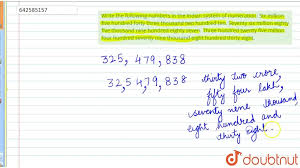 642585157
Write the following numbers in the Indian system of numeration. Six million five hundred forty three thousand two hundred ten. Seventy six million eighty five thousand nine hundred eighty seven. Three hundred twenty five million four hundred seventy nine thousand eight hundred thirty eight.
325, 479, 838
32,5 4,79, 838
thirty two crore,
fifty four lakh,
seventy nine thousand
eight hundred and
thirty eight.
doubtnut